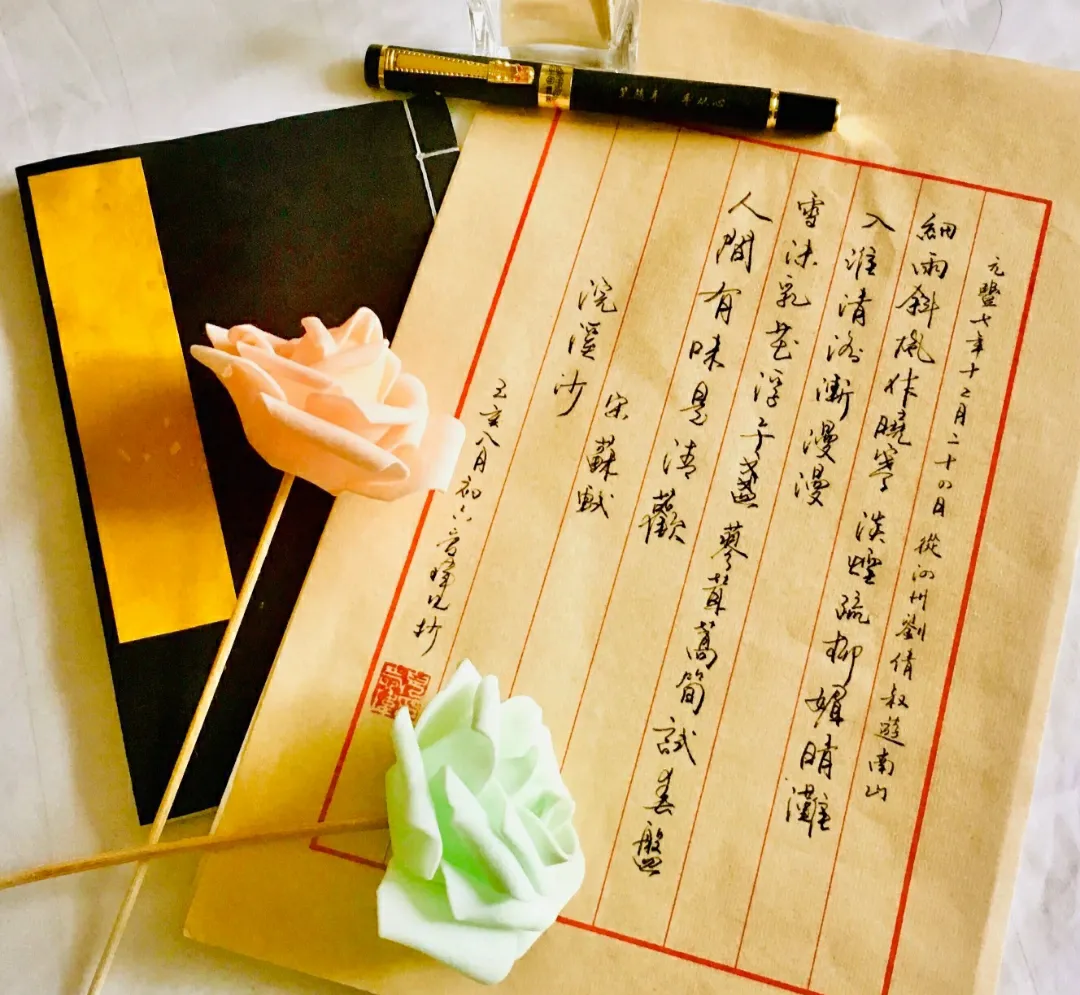 元豐七年十二月二十四日從泗州劉倩叔遊南山
細雨斜風作曉寒 淡煙疏柳媚晴灘
入淮清洛漸漫漫
雪沫乳花浮午盞 蓼茸蒿筍試春盤
人間有味是清歡
宋 蘇軾
浣溪沙
亥八月初六 抄